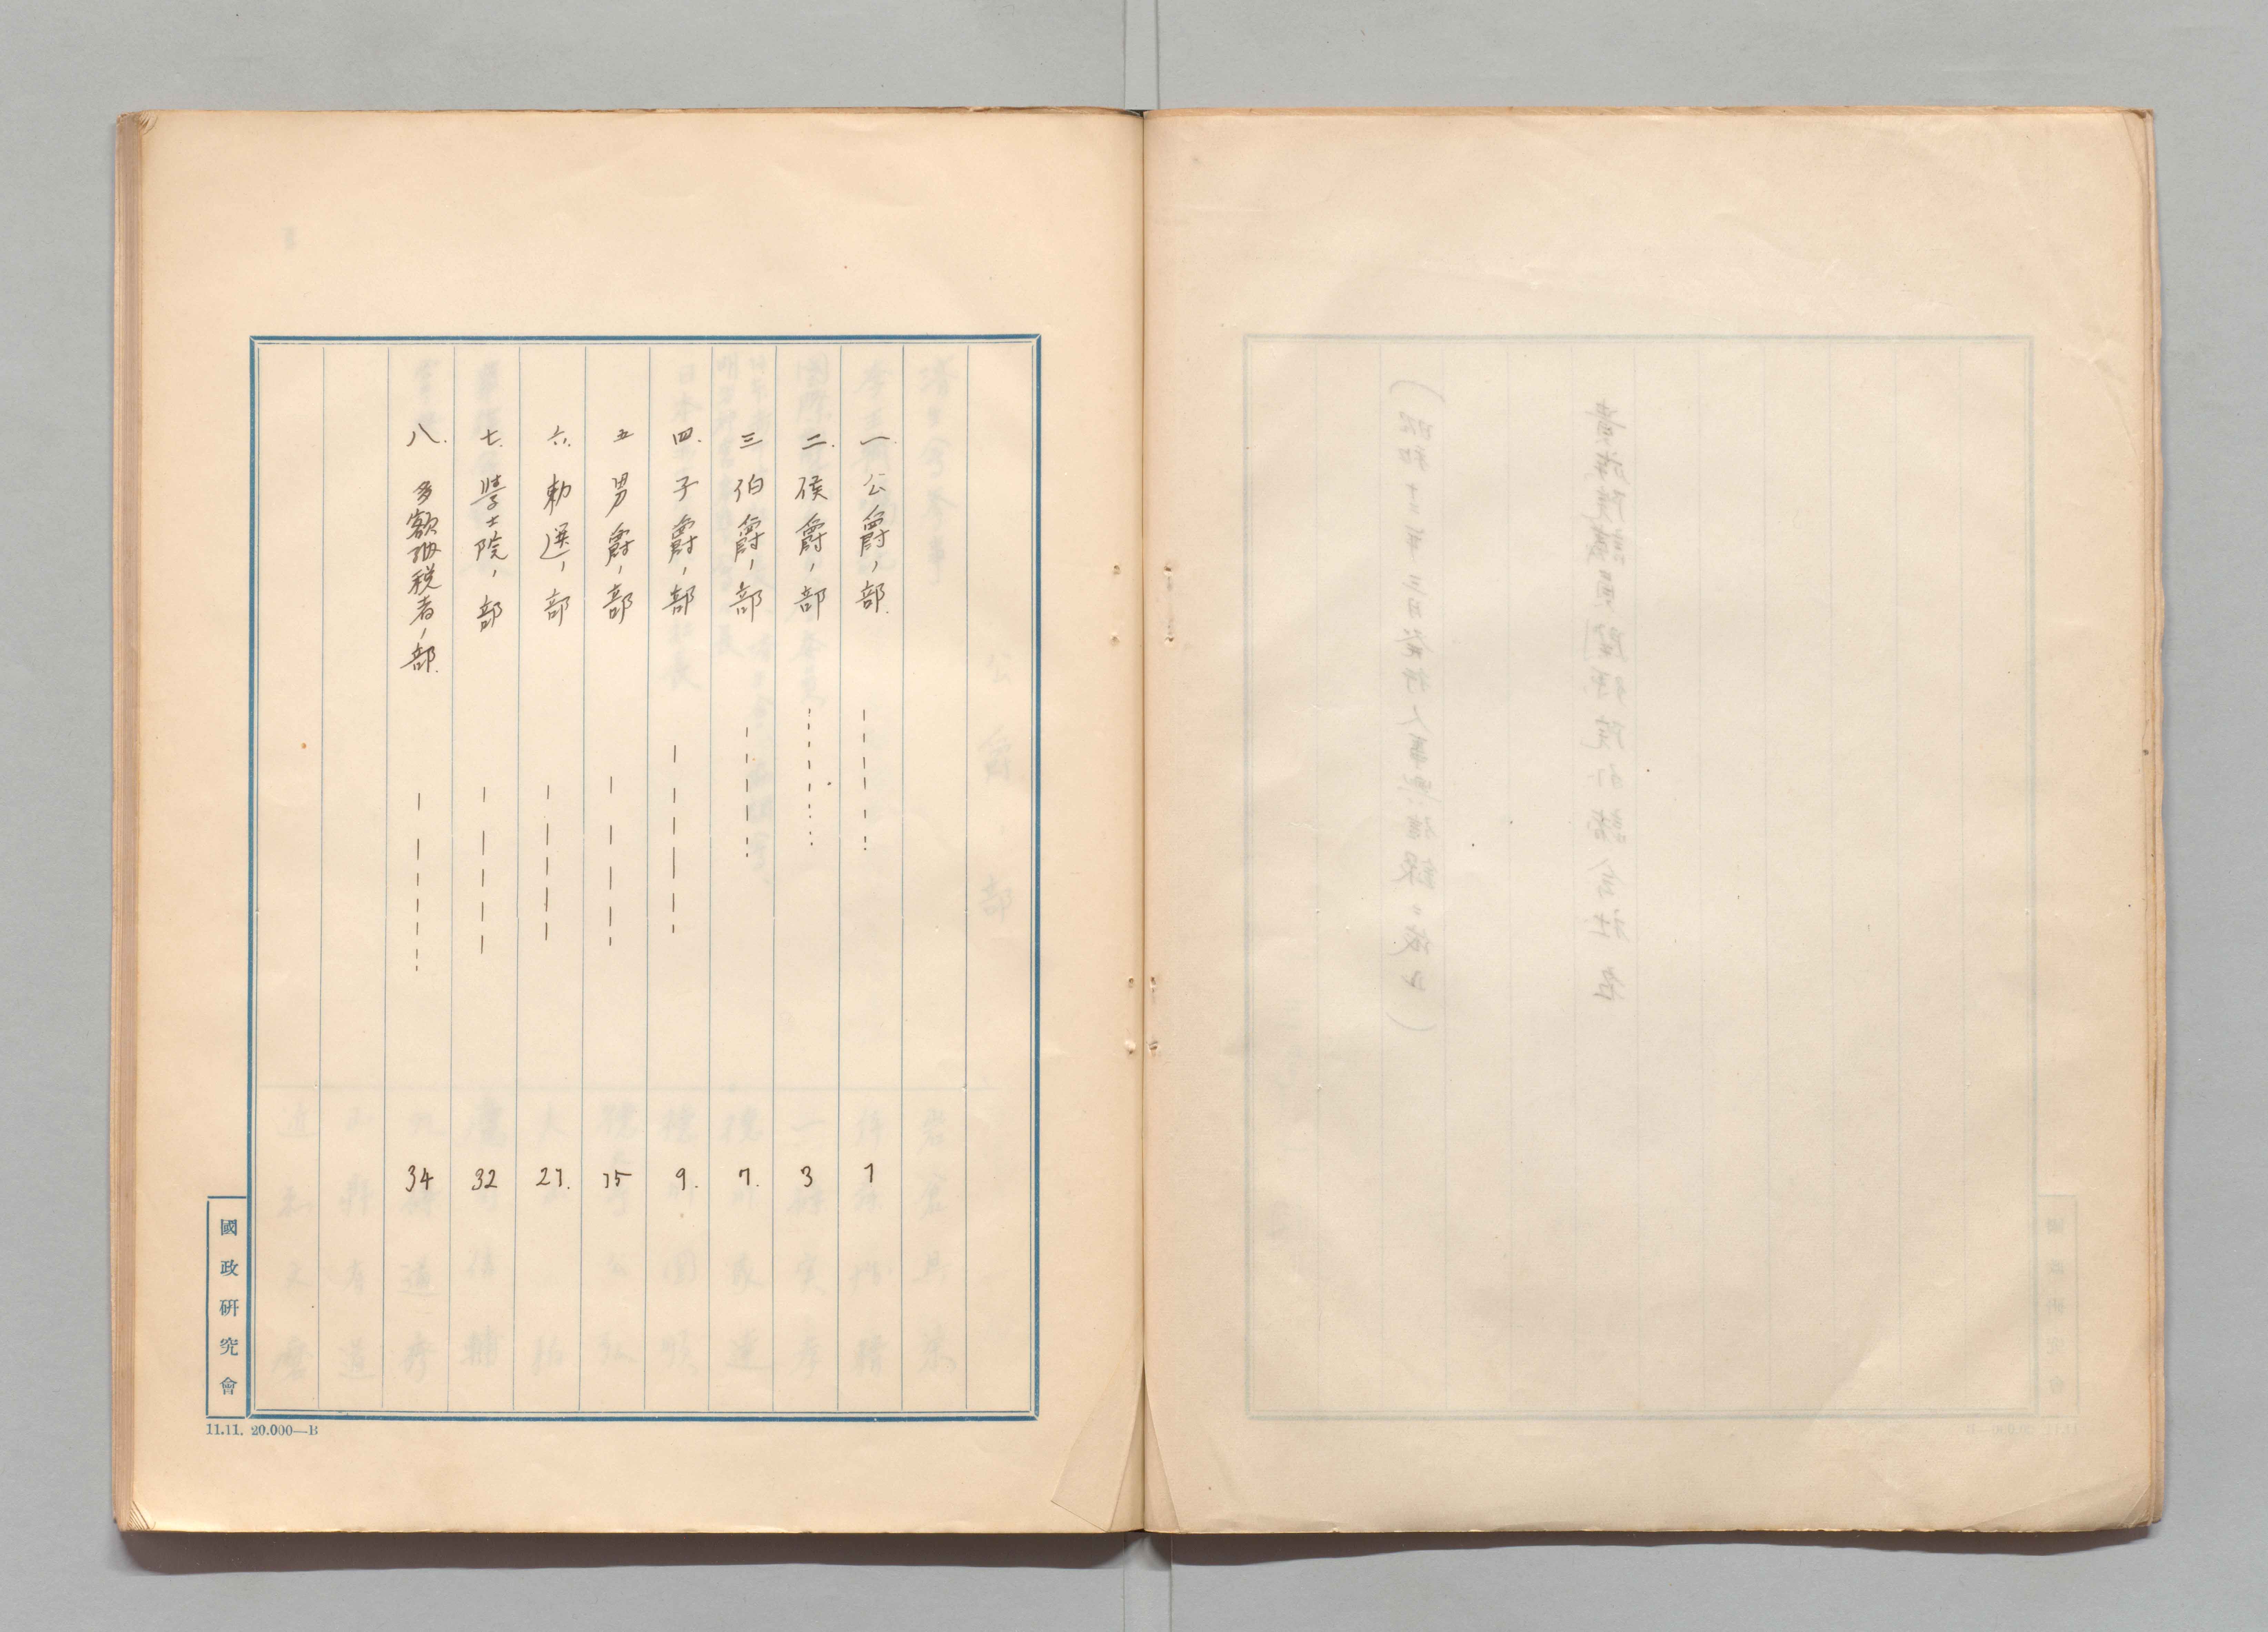 一. 公爵ノ部. 1
二. 侯爵ノ部 3
三 伯爵ノ部 7.
四. 子爵ノ部 9.
五 男爵ノ部 15
六. 勅選ノ部 27.
七. 學士院ノ部 32
八. 多額納税者ノ部. 34
國政研究會
11.11. 20.000—B